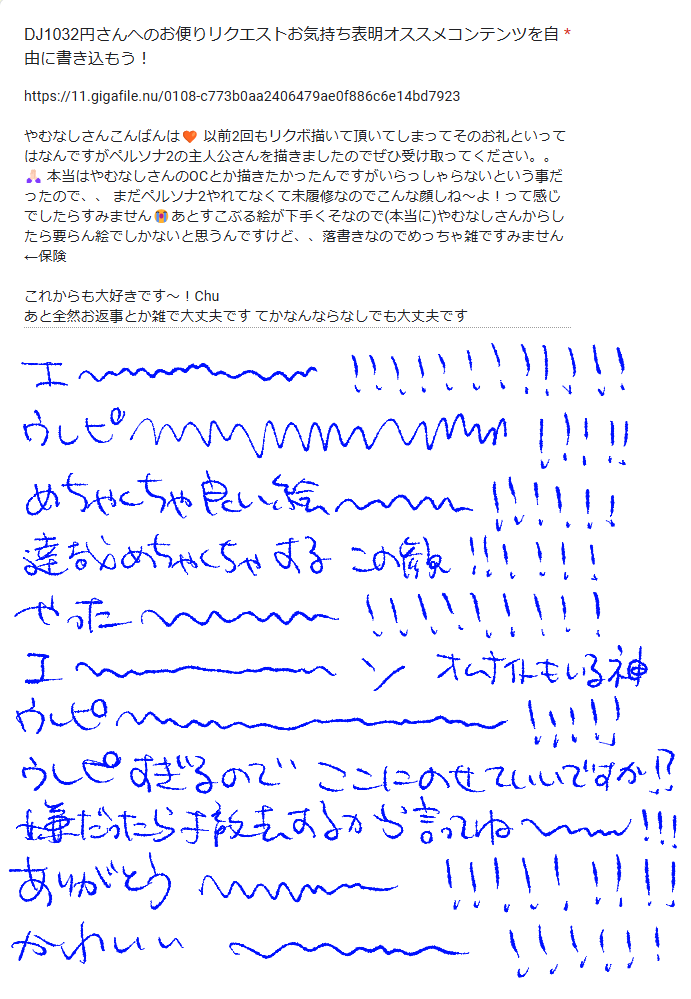 DJ1032円さんへのお便りリクエストお気持ち表明オススメコンテンツを自 *
由に書き込もう！
https://11.gigafile.nu/0108-c773b0aa2406479ae0f886c6e14bd7923
やむなしさんこんばんは❤️‍🔥 以前2回もリクボ描いて頂いてしまってそのお礼といって
はなんですがペルソナ2の主人公さんを描きましたのでぜひ受け取ってください。。
🙏🏻 本当はやむなしさんのOCとか描きたかったんですがいらっしゃらないという事だ
ったので、、 まだペルソナ2やれてなくて未履修なのでこんな顔しね〜よ！って感じ
でしたらすみません😭あとすこぶる絵が下手くそなので(本当に)やむなしさんからし
たら要らん絵でしかないと思うんですけど、、落書きなのでめっちゃ雑ですみません
←保険
これからも大好きです〜！Chu
あと全然お返事とか雑で大丈夫です てかなんならなしでも大丈夫です
エ〜〜〜〜〜 !!!!!!!!!!!
ウレピ〜〜〜〜〜 !!!!!
めちゃくちゃ良い絵〜〜〜 !!!!!
達哉めちゃくちゃする この顔 !!!!!!
やった〜〜〜〜 !!!!!!!!!
エ〜〜〜〜〜ン オムナイトもいる神
ウレピ〜〜〜〜〜 !!!!!
ウレピすぎるので ここにのせていいですか!?
嫌だったら撤去するから言ってね〜〜〜 !!!
ありがとう 〜〜〜〜 !!!!!!!!!
かわいい 〜〜〜〜 !!!!!!